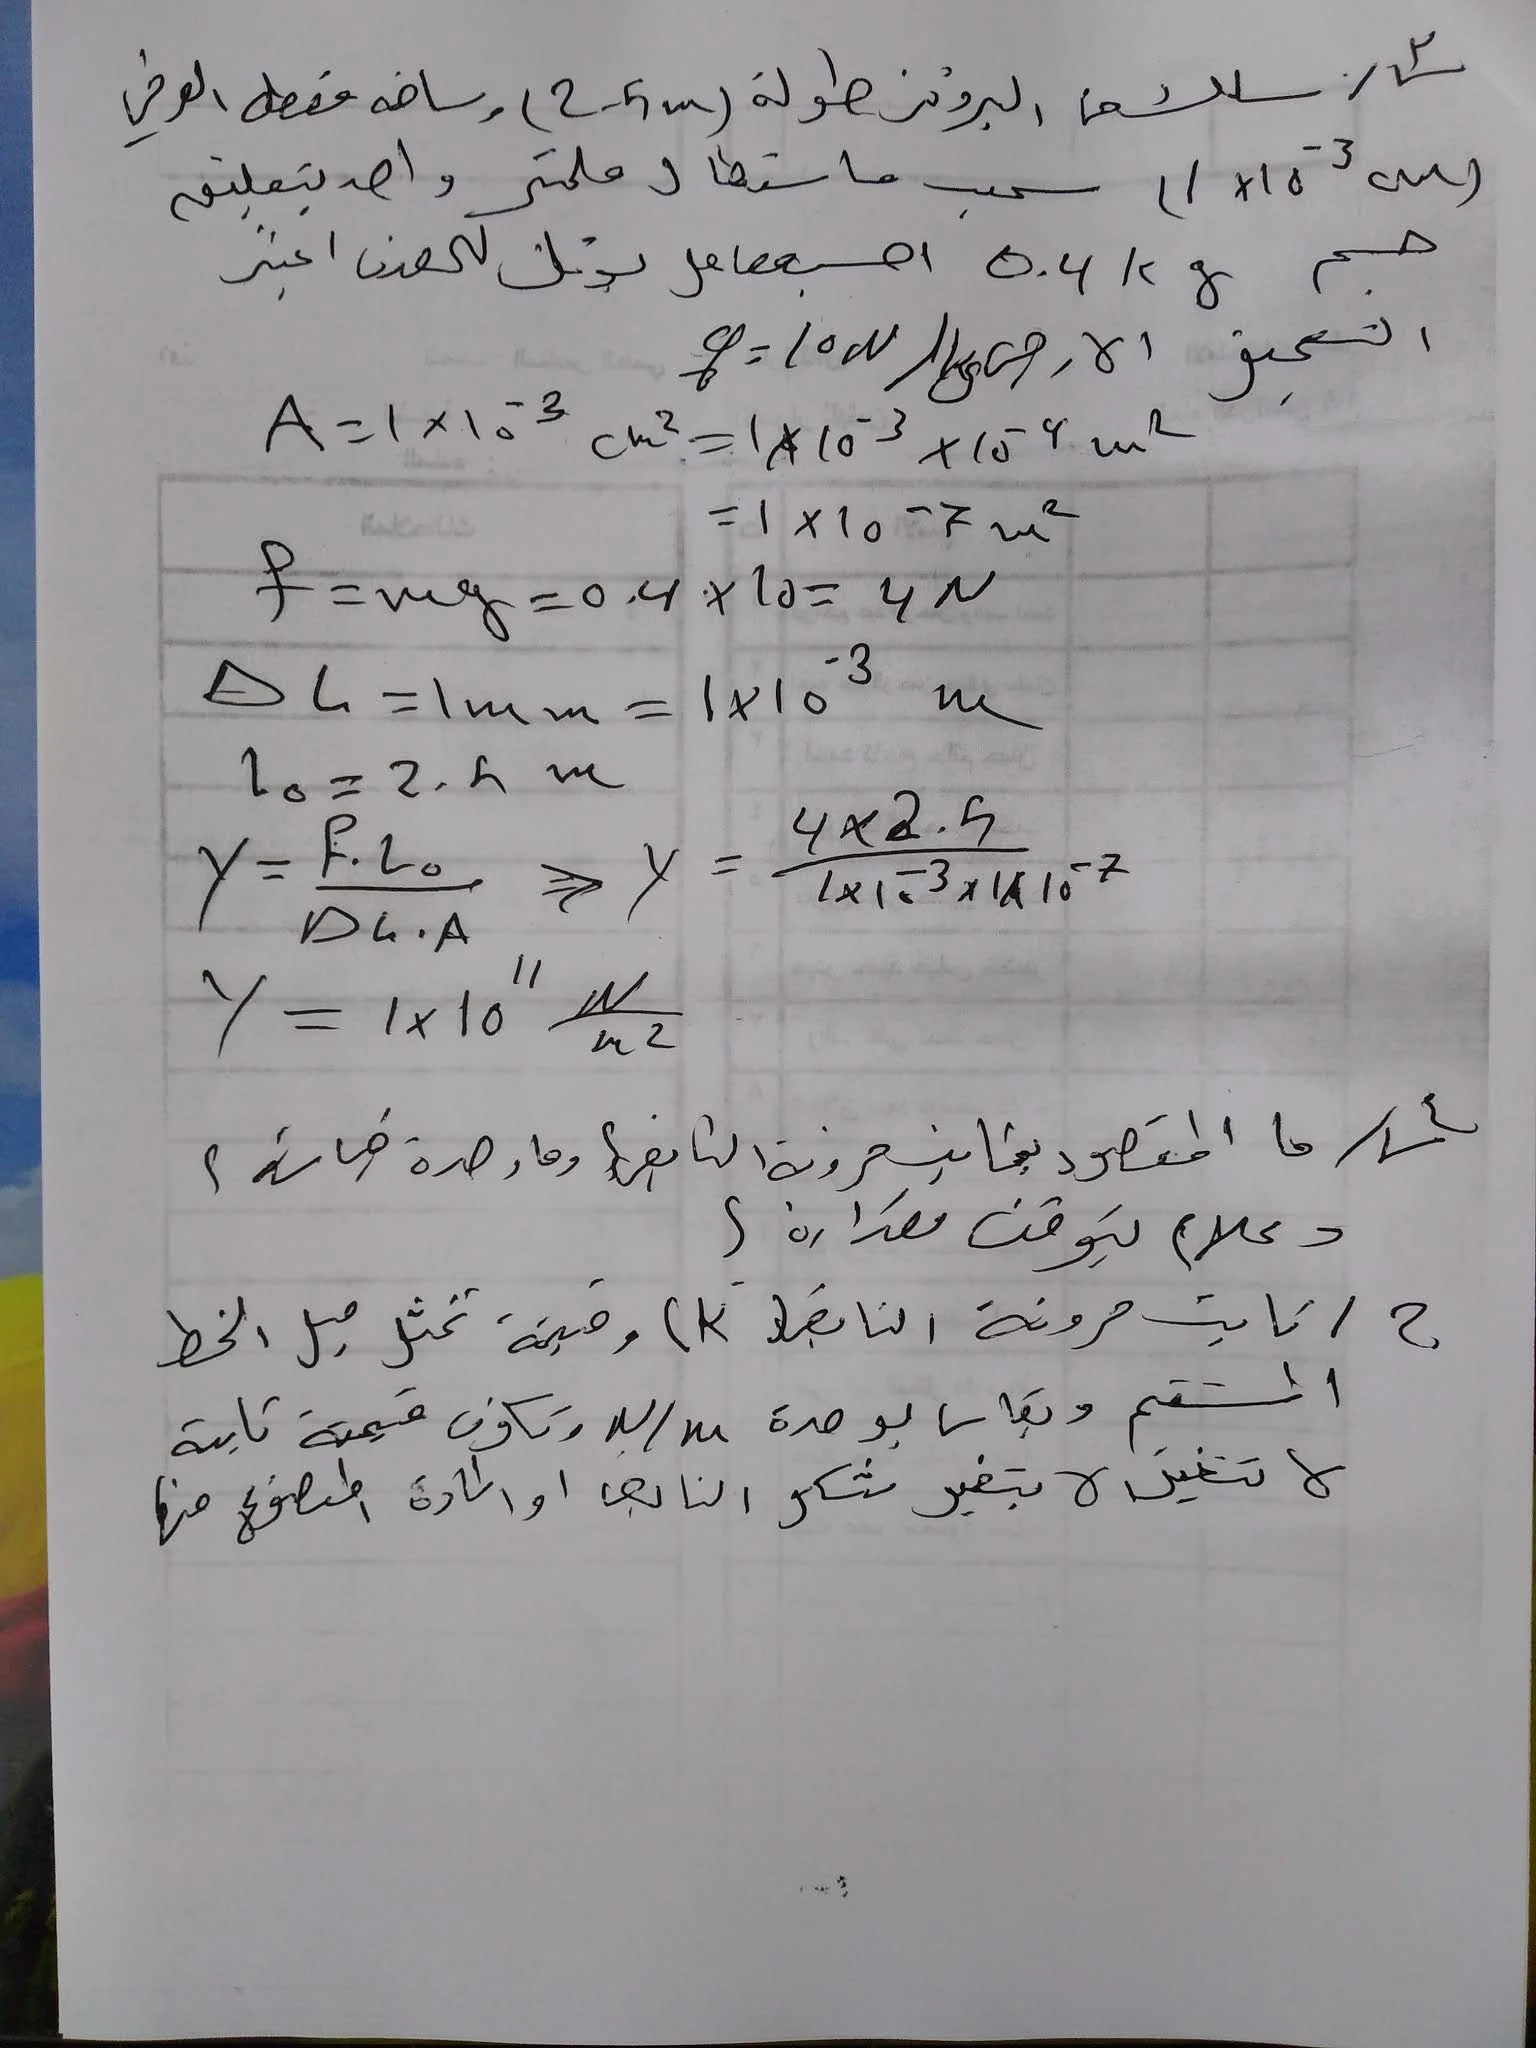 س٣/ سلك من البرونز طولة (2.5m) ومساحه مقطعه العرضي
(1 x10⁻³ cm) سحب ما ستطال ملمتر واحد بتعليق
جسم 0.4 kg احسب معامل يونك للمعدن اعتبر
التعجيل الارضي g=10N/kg
A = 1 x 10⁻³ cm² = 1x10⁻³ x 10⁻⁴ m²
= 1 x 10⁻⁷ m²
f = mg = 0.4 x 10 = 4 N
ΔL = 1mm = 1x10⁻³ m
L₀ = 2.5 m
Y = F.L₀ / ΔL.A ⇒ Y = 4x2.5 / 1x10⁻³ x 1x10⁻⁷
Y = 1x10¹¹ N/m²
س٤/ ما المقصود بثابت مرونة النابض؟ وما وحدة قياسة؟
وعلام يتوقف مقدارة؟
ج/ ثابت مرونة النابض (K) وقيمة تمثل ميل الخط
المستقيم ويقاس بوحدة N/m وتكون قيمتة ثابتة
لا تتغير الا بتغير شكل النابض او المادة المصنوع منها